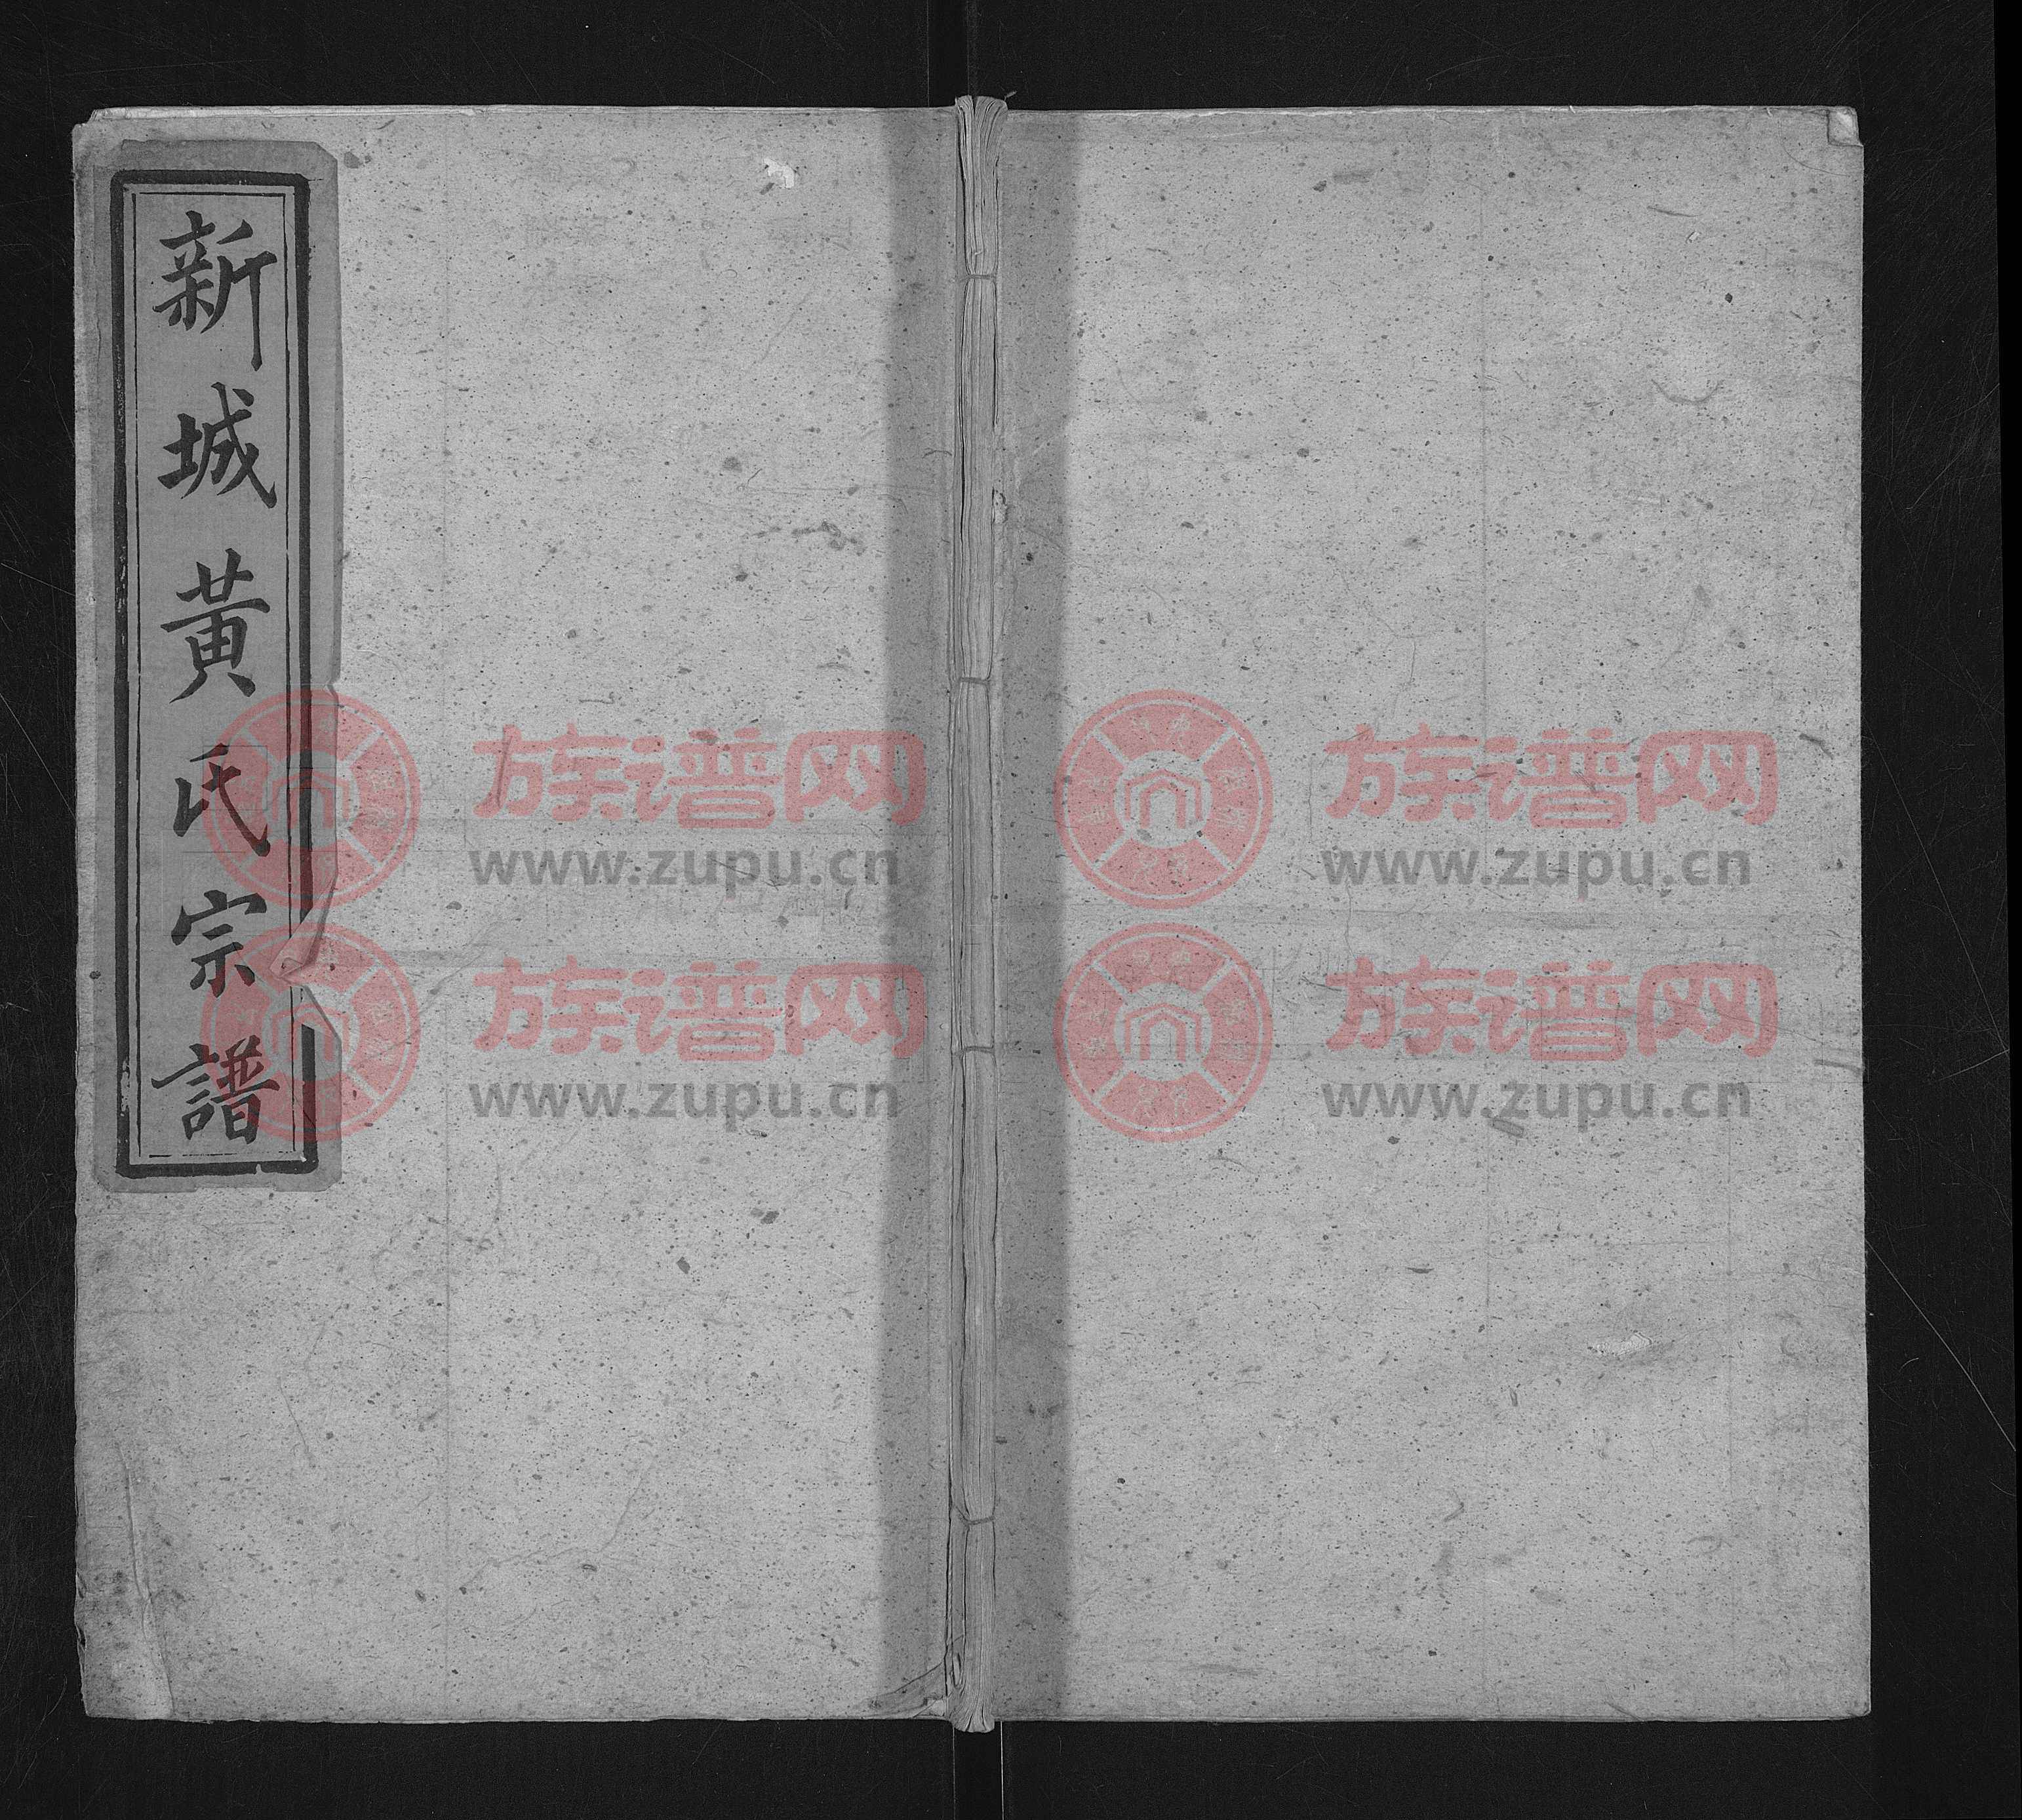 新城黃氏宗譜
族谱网
www.zupu.cn
族谱网
www.zupu.cn
族谱网
www.zupu.cn
族谱网
www.zupu.cn